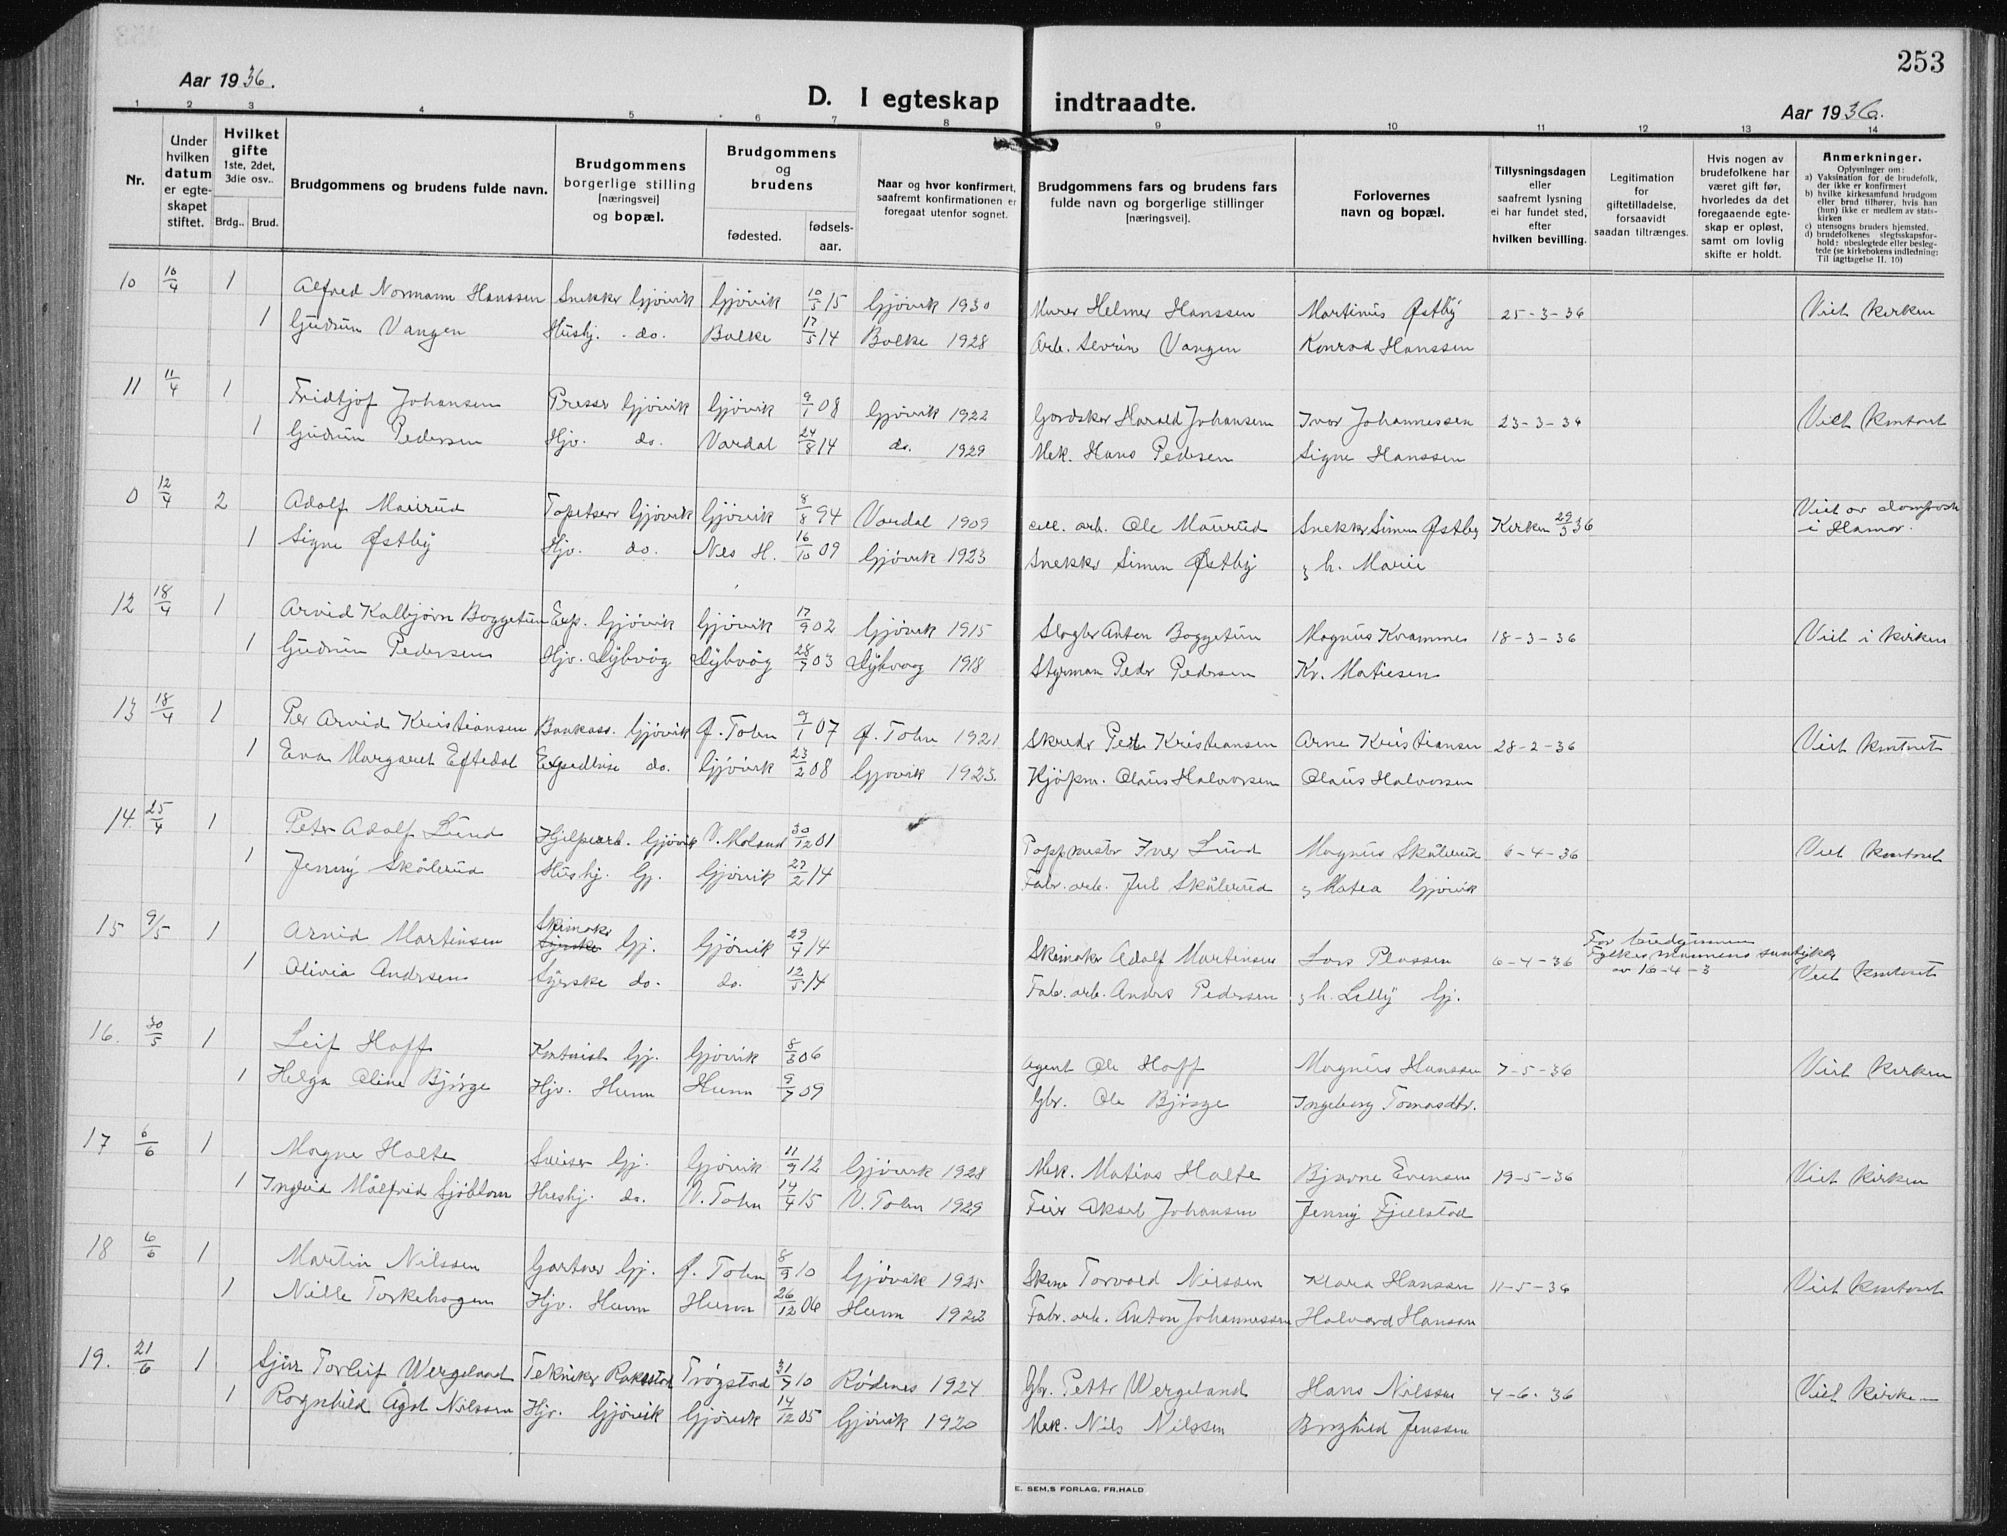 253
Aar 1936.
D. I egteskap indtraadte.
Aar 1936.
1 2 3 4 5 6 7 8 9 10 11 12 13 14
Nr.
Under hvilken datum er egte-skapet stiftet.
Hvilket gifte 1ste, 2det, 3die osv..
Brdg.. Brud.
Brudgommens og brudens fulde navn.
Brudgommens borgerlige stilling [næringsvei] og bopæl.
Brudgommens og brudens
fødested. fødsels-aar.
Naar og hvor konfirmert, saafremt konfirmationen er foregaat utenfor sognet.
Brudgommens fars og brudens fars fulde navn og borgerlige stillinger [næringsvei].
Forlovernes navn og bopæl.
Tillysningsdagen eller saafremt lysning ei har fundet sted, efter hvilken bevilling.
Legitimation for giftetilladelse, forsaavidt saadan tiltrænges.
Hvis nogen av brudefolkene har været gift før, hvorledes da det foregaaende egte-skap er opløst, samt om lovlig skifte er holdt.
Anmerkninger.
Oplysninger om:
a) Vaksination for de brudefolk, der ikke er konfirmert
b) hvilke kirkesamfund brudgom eller brud tilhører, hvis han (hun) ikke er medlem av stats-kirken
c) utensogns bruders hjemsted.
d) brudefolkenes slegtsskapsfor-hold: ubeslegtede eller besleg-tede (se kirkebokens indledning: Til iagttagelse II. 10)
10 10/4 1 Alfred Normann Hanssen Snekker Gjövik Gjövik 10/5 15 Gjövik 1930 Murer Helmer Hanssen Martinius Østby 25-3-36 Viet kirken
1 Gudrun Vangen Hushj. do. Balke 17/5 14 Balke 1928 Arb. Severin Vangen Konrad Hanssen
11 11/4 1 Fridtjof Johansen Presser Gjövik Gjövik 9/1 08 Gjövik 1922 Gardsker Harald Johansen Ivar Johannessen 23-3-36 Viet kontoret
1 Gudrun Pedersen Hjv. do. Vardal 24/8 14 do. 1929 Mek. Hans Pedersen Signe Hanssen
0 12/4 2 Adolf Maurud Tapetserer Gjövik Gjövik 8/8 94 Vardal 1909 arb. Ole Maurud Snekker Simen Østby Kirken 29/3 36 Viet av domprost i Hamar.
1 Signe Østby Hjv. do. Nes H. 16/10 09 Gjövik 1923 Snekker Simen Østby h. Marie
12 18/4 1 Arvid Kolbjørn Boggetun Exp. Gjövik Gjövik 17/9 02 Gjövik 1915 Slagter Anton Boggetun Magnus Kramme 18-3-36 Viet i kirken
1 Gudrun Pedersen Hjv. Dybvåg Dybvåg 28/7 03 Dybvaag 1918 Styrman Peder Pedersen Kr. Matiesen
13 18/4 1 Per Arvid Kristiansen Bankass. Gjövik Ø. Toten 9/1 07 Ø. Toten 1921 Skredder Petter Kristiansen Arne Kristiansen 28-2-36 Viet kontoret
1 Eva Margaret Eftedal Expeditrise do. Gjövik 23/2 08 Gjövik 1923. Kjöpm. Olaus Halvorsen Olaus Halvorsen
14. 25/4 1 Peter Adolf Lund Hjelpearb. Gjövik V. Moland 30/12 01 Iver Lund Magnus Skålerud 6-4-36 Viet kontoret
1 Jenny Skålerud Hushj. Gj. Gjövik 27/2 14 Fabr. arb. Jul Skålerud Matea Gjövik
15 9/5 1 Arvid Martinsen Skimaker Gj. Gjövik 29/4 14 Skimaker Adolf Martinsen Lars Plassen 6-4-36 For brudgommen Fylkesmannens samtykke av 16-4-3 Viet kontoret
1 Olivia Andersen Syerske do. do. 12/5 14 Fabr. arb. Anders Pedersen h. Lilly Gj.
16. 30/5 1 Leif Hoff Kontorist Gj. Gjövik 8/3 06 Agent Ole Hoff Magnus Hanssen 7-5-36 Viet kirken
1 Helga Oline Bjørge Hjv. Hunn Hunn 9/7 09 Gbr. Ole Bjørge Ingeborg Tomasdtr.
17 6/6 1 Magne Holte Sveiser Gj. Gjövik 11/9 12 Gjövik 1928 Mek. Matias Holte Bjarne Evensen 19-5-36 Viet kirken
1 Ingrid Målfrid Sjöblom Hushj. do. V. Toten 14/4 15 V. Toten 1929 Feier Aksel Johansen Jenny Fjellstad
18 6/6 1 Martin Nilssen Gartner Gj. Ø. Toten 8/9 10 Gjövik 1925 Torvald Nilssen Klara Hanssen 11-5-36 Viet kontoret
1 Nille Torkehagen Hjv. Hunn Hunn 26/12 06 Hunn 1922 Fabr. arb. Anton Johannessen Halvard Hansen
19. 21/6 1 Sjur Torleif Wergeland Tekniker Rakkestad Trögstad 31/7 10 Rödenes 1924 Gbr. Petter Wergeland Hans Nilssen 4-6-36 Viet kirken
1 Ragnhild Ågot Nilssen Hjv. Gjövik Gjövik 14/12 05 Gjövik 1920 Mek. Nils Nilssen Borghild Jenssen
E. SEM.S FORLAG, FR.HALD